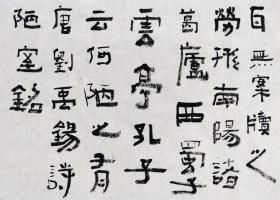 耳無案牘之
勞形南陽諸
葛廬西蜀子
雲亭孔子
云何陋之有
唐劉禹錫詩
陋室銘